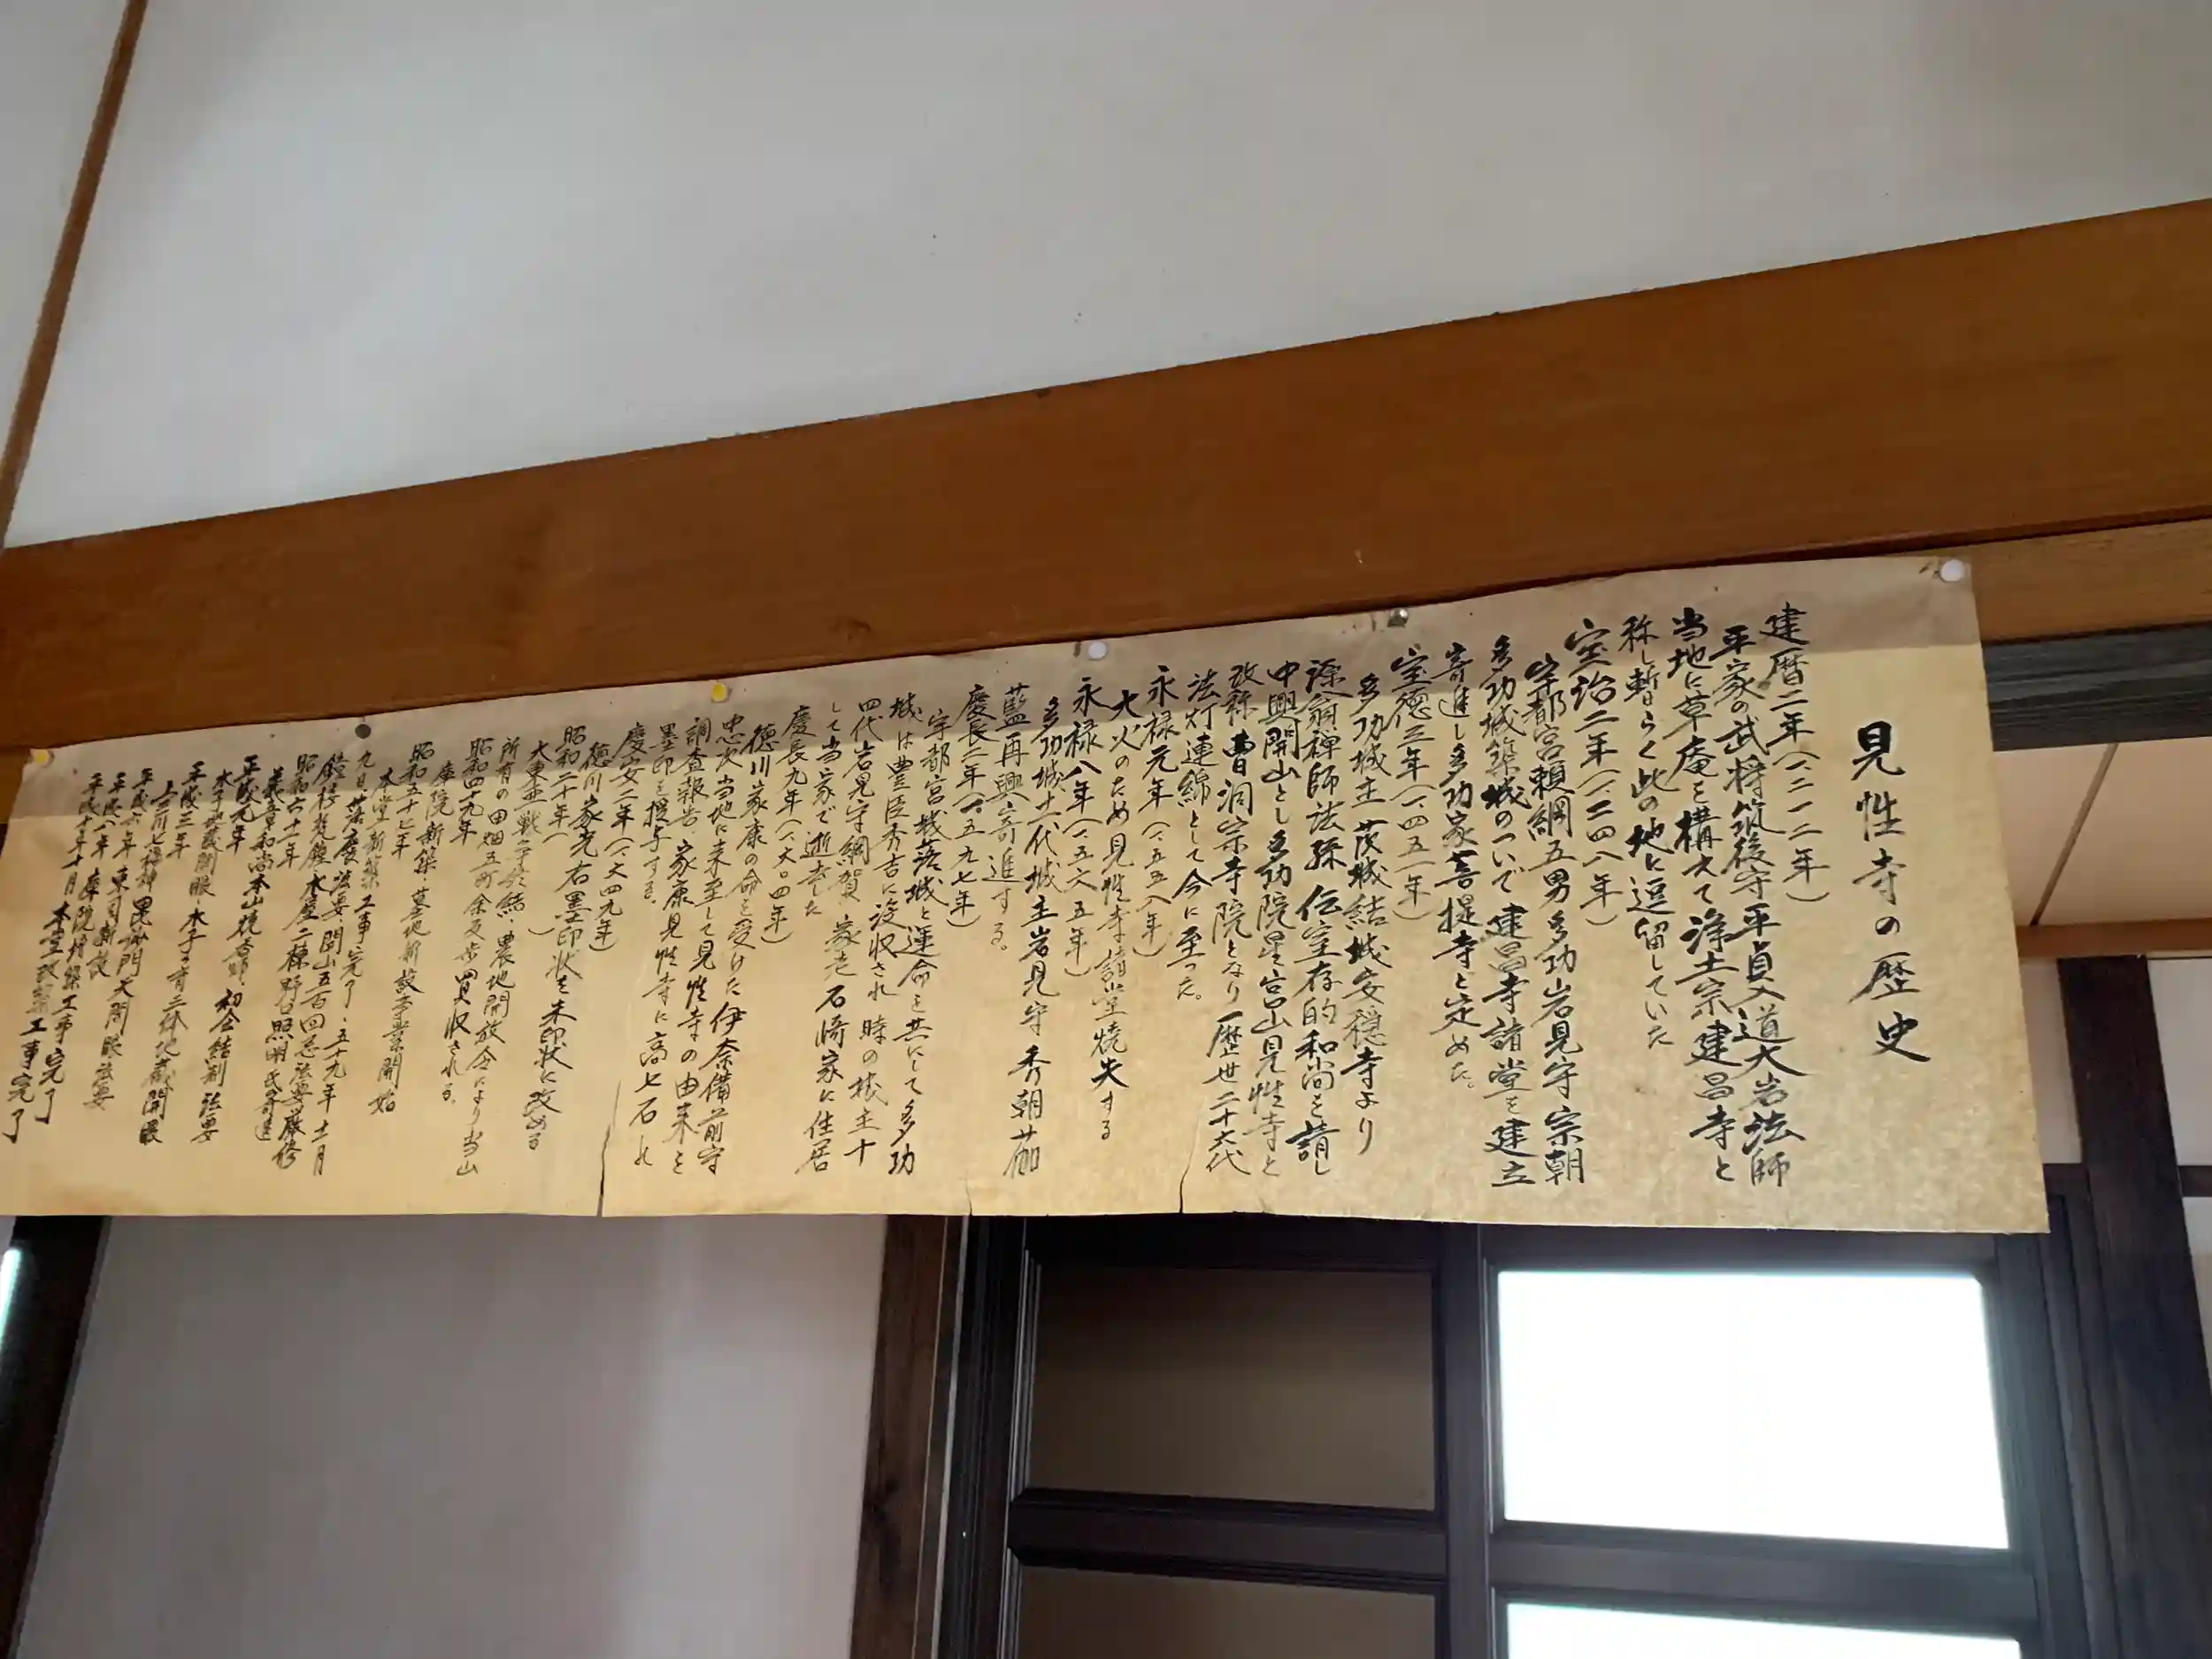 見性寺の歴史
建暦二年（一二一二年）
平家の武将筑後守平貞入道大岩法師
当地に草庵を構えて浄土宗建昌寺と
称し暫らく此の地に逗留していた
宝治二年（一二四八年）
宇都宮頼綱五男多功岩見守宗朝
多功城築城のついで建昌寺諸堂を建立
寄進し多功家菩提寺と定めた。
宝徳三年（一四五一年）
多功城主茂城結城安穏寺より
禅師法孫伝室存的和尚を請し
中興開山とし多功院星宮山見性寺と
改称曹洞宗寺院となり歴世二十六代
法灯連綿として今に至った。
永禄元年（一五五八年）
大火のため見性寺諸堂焼失する
永禄八年（一五六五年）
多功城十代城主岩見守秀朝伽
藍再興寄進する。
慶長二年（一五九七年）
宇都宮城落城と運命を共にして多功
城は豊臣秀吉に没収され時の城主十
四代岩見守綱賀家老石崎家に住居
して当家で逝去した
慶長九年（一六〇四年）
徳川家康の命を受けた伊奈備前守
忠次当地に来至して見性寺の由来を
調査報告、家康見性寺に高七石
墨印を授与する。
慶安二年（一六四九年）
徳川家光右墨印状を朱印状に改める
昭和二十年（
大東亜戦争終結）農地開放令により当山
所有の田畑五町余反歩買収される。
昭和四十九年
庫院新築・墓地新設事業開始
昭和五十七年
本堂新築工事完了・五十九年十一月
九日落慶法要開山五百回忌法要厳修
鐘楼梵鐘水屋二棟野口照明氏寄進
昭和六十一年
義章和尚本山焼香師、初会結制法要
平成元年
水子地蔵開眼・水子子育三体地蔵開眼
平成三年
上三川七福神毘沙門天開眼法要
平成六年東司新設
平成八年庫院増築工事完了
平成十年十月本堂改築工事完了